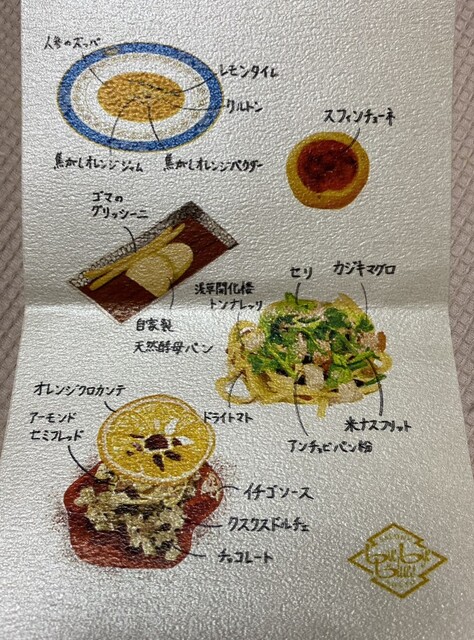 人参のズッパ
レモンタイム
クルトン
焦がしオレンジジャム
焦がしオレンジパウダー
スフィンチョーネ
ゴマの
グリッシーニ
自家製
天然酵母パン
浅草開化楼
トンナレッリ
セリ
カジキマグロ
ドライトマト
アンチョビパン粉
米ナスフリット
オレンジクロカンテ
アーモンド
セミフレッド
イチゴソース
クスクスドルチェ
チョコレート